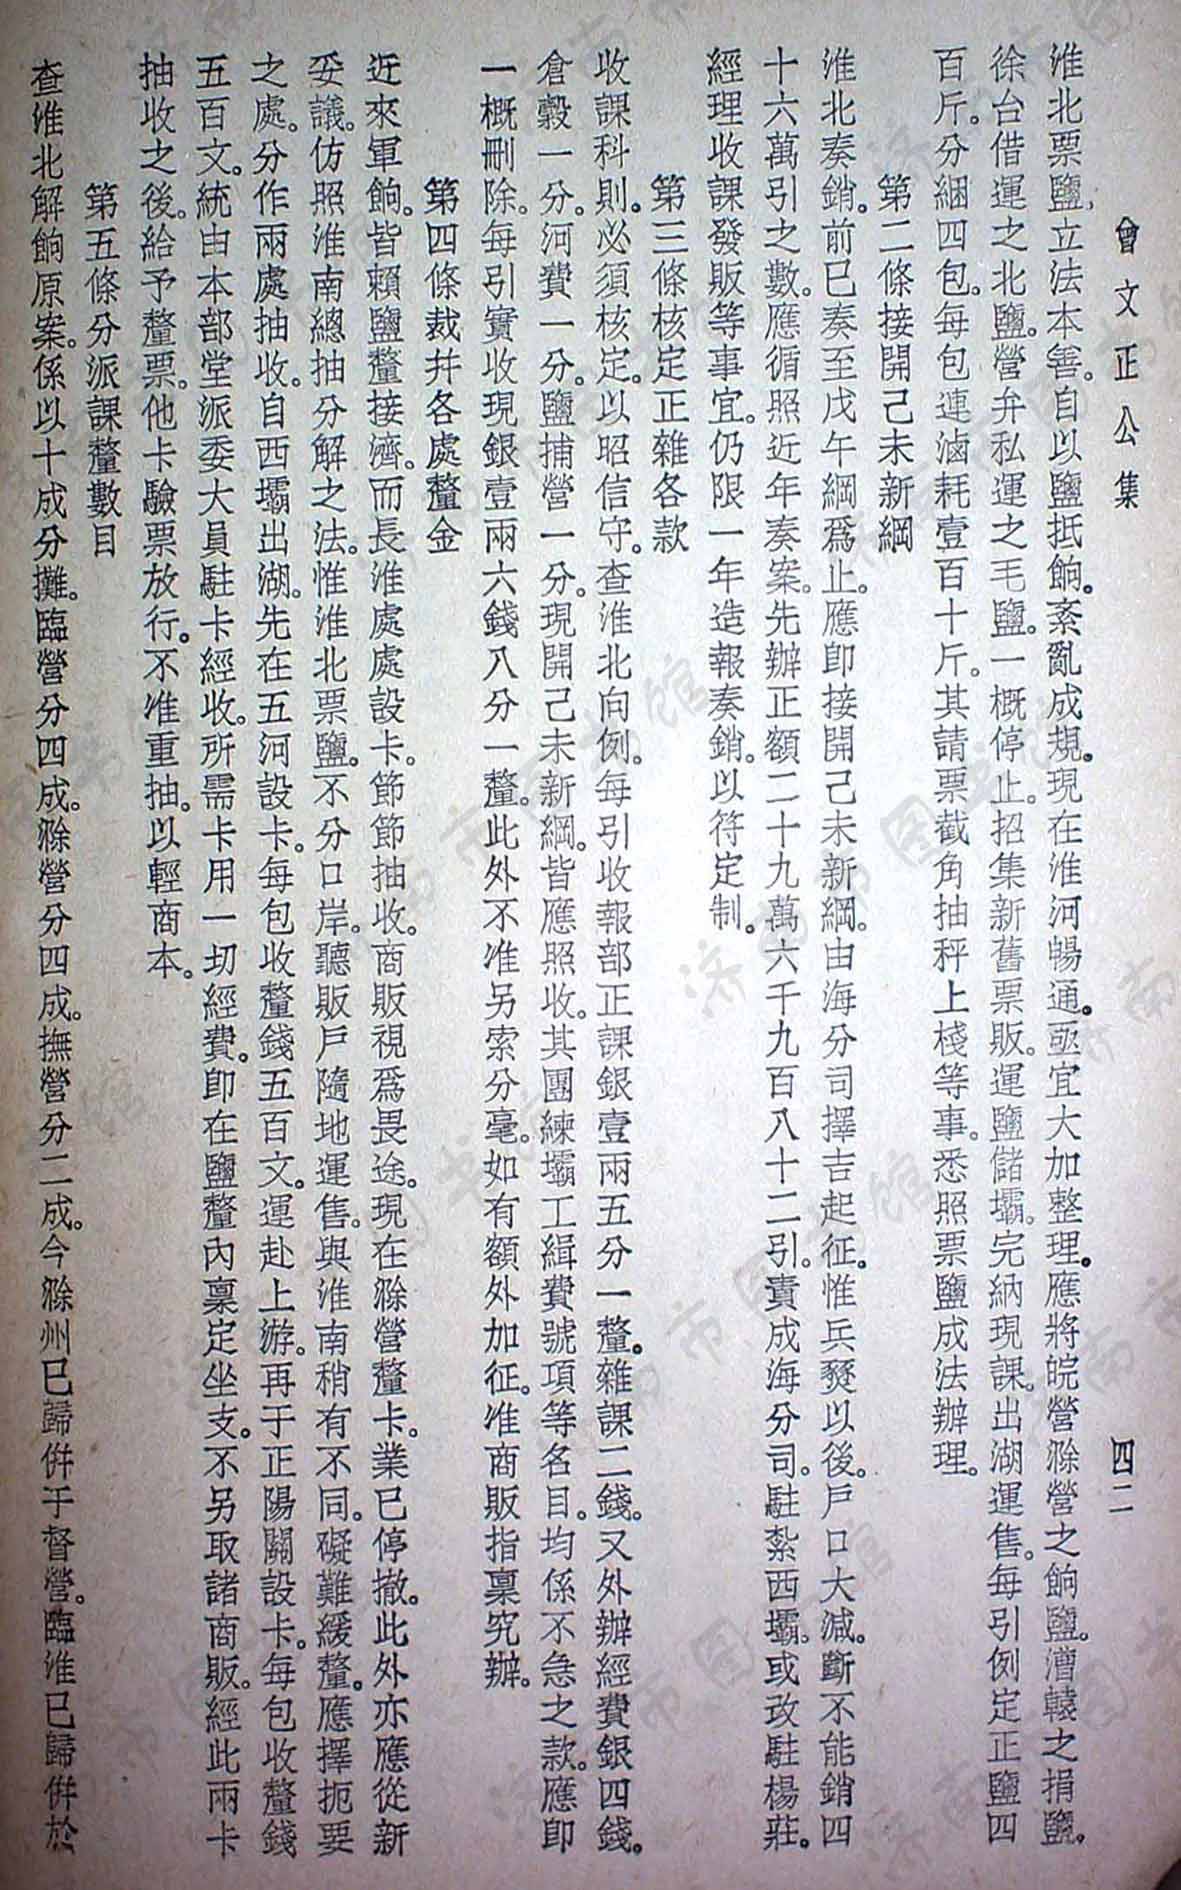 曾文正公集　四二
淮北票鹽。立法本善。自以鹽抵餉。紊亂成規。現在淮河暢通。亟宜大加整理。應將皖營滁營之餉鹽。漕轅之捐鹽。
徐台借運之北鹽。營弁私運之毛鹽。一概停止。招集新舊票販。運鹽儲壩。完納現課。出湖運售。每引例定正鹽四
百斤。分綑四包。每包連滷耗壹百十斤。其請票截角抽秤上棧等事。悉照票鹽成法辦理。
第二條接開己未新綱
淮北奏銷。前已奏至戊午綱爲止。應卽接開己未新綱。由海分司擇吉起征。惟兵燹以後。戶口大減。斷不能銷四
十六萬引之數。應循照近年奏案。先辦正額二十九萬六千九百八十二引。責成海分司。駐紮西壩。或改駐楊莊。
經理收課發販等事宜。仍限一年造報奏銷。以符定制。
第三條核定正雜各款
收課科則。必須核定。以昭信守。查淮北向例。每引收報部正課銀壹兩五分一釐。雜課二錢。又外辦經費銀四錢。
倉穀一分。河費一分。鹽捕營一分。現開己未新綱。皆應照收。其團練壩工緝費號項等名目。均係不急之款。應卽
一概刪除。每引實收現銀壹兩六錢八分一釐。此外不准另索分毫。如有額外加征。准商販指稟究辦。
第四條裁幷各處釐金
近來軍餉。皆賴鹽釐接濟。而長淮處處設卡。節節抽收。商販視爲畏途。現在滁營釐卡。業已停撤。此外亦應從新
妥議。仿照淮南總抽分解之法。惟淮北票鹽。不分口岸。聽販戶隨地運售。與淮南稍有不同。礙難緩釐。應擇扼要
之處。分作兩處抽收。自西壩出湖。先在五河設卡。每包收釐錢五百文。運赴上游。再于正陽關設卡。每包收釐錢
五百文。統由本部堂派委大員駐卡經收。所需卡用一切經費。卽在鹽釐內稟定坐支。不另取諸商販。經此兩卡
抽收之後。給予釐票。他卡驗票放行。不准重抽。以輕商本。
第五條分派課釐數目
查淮北解餉原案。係以十成分攤。臨營分四成。滁營分四成。撫營分二成。今滁州已歸併于督營。臨淮已歸併於